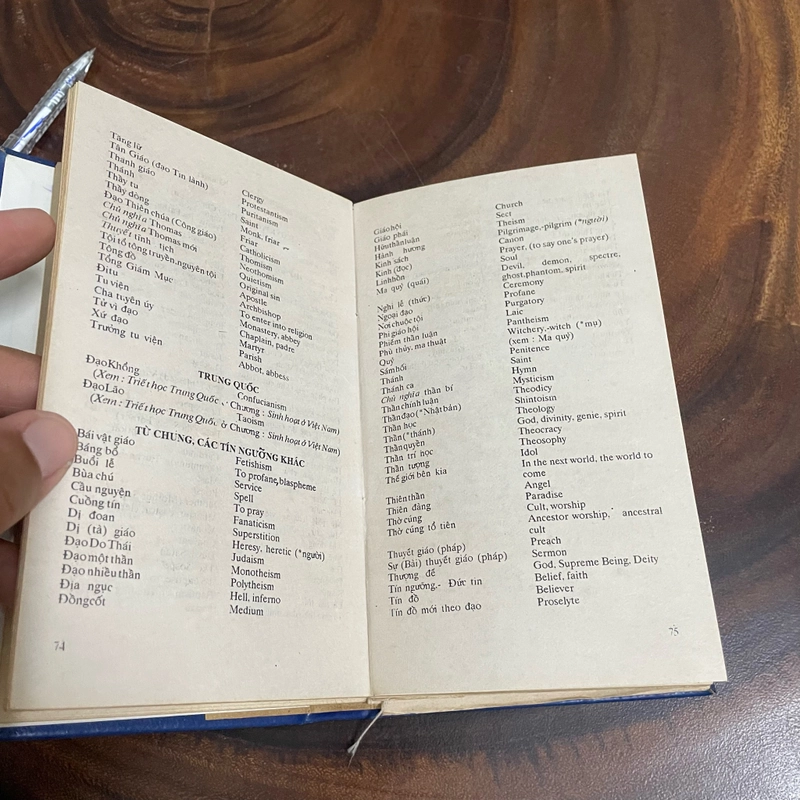 Tăng lữ Clergy
Tân Giáo (đạo Tin lành) Protestantism
Thanh giáo Puritanism
Thánh Saint
Thầy tu Monk, friar
Thầy dòng Friar
Đạo Thiên chúa (Công giáo) Catholicism
Chủ nghĩa Thomas Thomism
Chủ nghĩa Thomas mới Neothomism
Thuyết tĩnh tịch Quietism
Tội tổ tông truyền, nguyên tội Original sin
Tông đồ Apostle
Tổng Giám Mục Archbishop
Đi tu To enter into religion
Tu viện Monastery, abbey
Cha tuyên úy Chaplain, padre
Tử vì đạo Martyr
Xứ đạo Parish
Trưởng tu viện Abbot, abbess
TRUNG QUỐC
Đạo Khổng Confucianism
(Xem : Triết học Trung Quốc , Chương : Sinh hoạt ở Việt Nam)
Đạo Lão Taoism
(Xem : Triết học Trung Quốc ở Chương : Sinh hoạt ở Việt Nam)
TỪ CHUNG, CÁC TÍN NGƯỠNG KHÁC
Bái vật giáo Fetishism
Báng bổ To profane, blaspheme
Buổi lễ Service
Bùa chú Spell
Cầu nguyện To pray
Cuồng tín Fanaticism
Dị đoan Superstition
Dị (tà) giáo Heresy, heretic (*người)
Đạo Do Thái Judaism
Đạo một thần Monotheism
Đạo nhiều thần Polytheism
Địa ngục Hell, inferno
Đồng cốt Medium
74
Giáo hội Church
Giáo phái Sect
Hữu thần luận Theism
Hành hương Pilgrimage,-pilgrim (*người)
Kinh sách Canon
Kinh (đọc) Prayer, (to say one's prayer)
Linh hồn Soul
Ma quỷ (quái) Devil, demon, spectre,
ghost, phantom, spirit
Nghi lễ (thức) Ceremony
Ngoại đạo Profane
Nơi chuộc tội Purgatory
Phi giáo hội Laic
Phiếm thần luận Pantheism
Phù thủy, ma thuật Witchery,-witch (*mụ)
Quỷ (xem : Ma quỷ)
Sám hối Penitence
Thánh Saint
Thánh ca Hymn
Chủ nghĩa thần bí Mysticism
Thần chính luận Theodicy
Thần đạo (*Nhật bản) Shintoisin
Thần học Theology
Thần (*thánh) God, divinity, genie, spirit
Thần quyền Theocracy
Thần trí học Theosophy
Thần tượng Idol
Thế giới bên kia In the next world, the world to
come
Thiên thần Angel
Thiên đàng Paradise
Thờ cúng Cult, worship
Thờ cúng tổ tiên Ancestor worship, ancestral
cult
Thuyết giáo (pháp) Preach
Sự (Bài) thuyết giáo (pháp) Sermon
Thượng đế God, Supreme Being, Deity
Tín ngưỡng,- Đức tin Belief, faith
Tín đồ Believer
Tín đồ mới theo đạo Proselyte
75